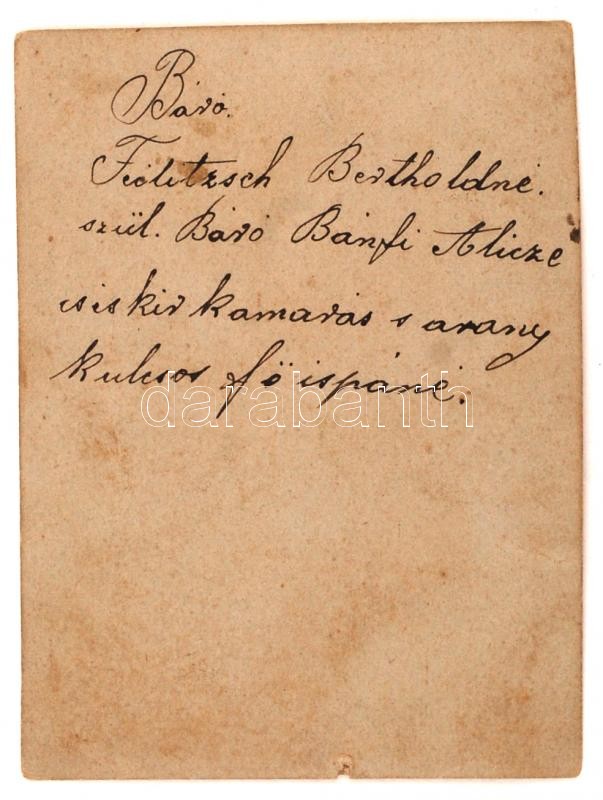 Báró.
Feilitzsch Bertholdné.
szül. Báró Bánfi Alicze
cs és kir kamarás s arany
kulcsos főispáné.
darabanth